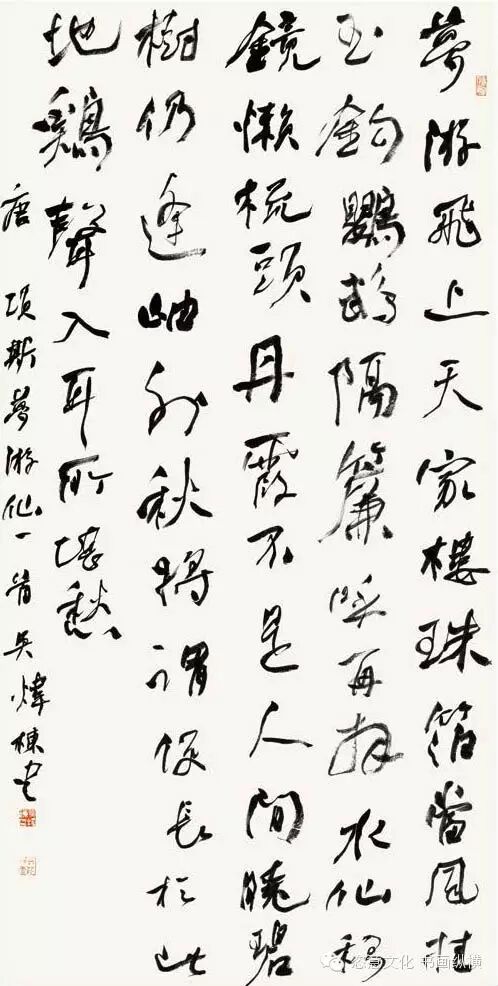 夢游飛上天家樓珠箔當風挂
玉鉤鸚鵡隔簾呼再拜水仙移
鏡懶梳頭丹霞不是人間曉碧
樹仍逢岫外秋將謂便長於此
地鷄聲入耳所堪愁
唐項斯夢游仙一首吳煒棟書
文化 书画纵横